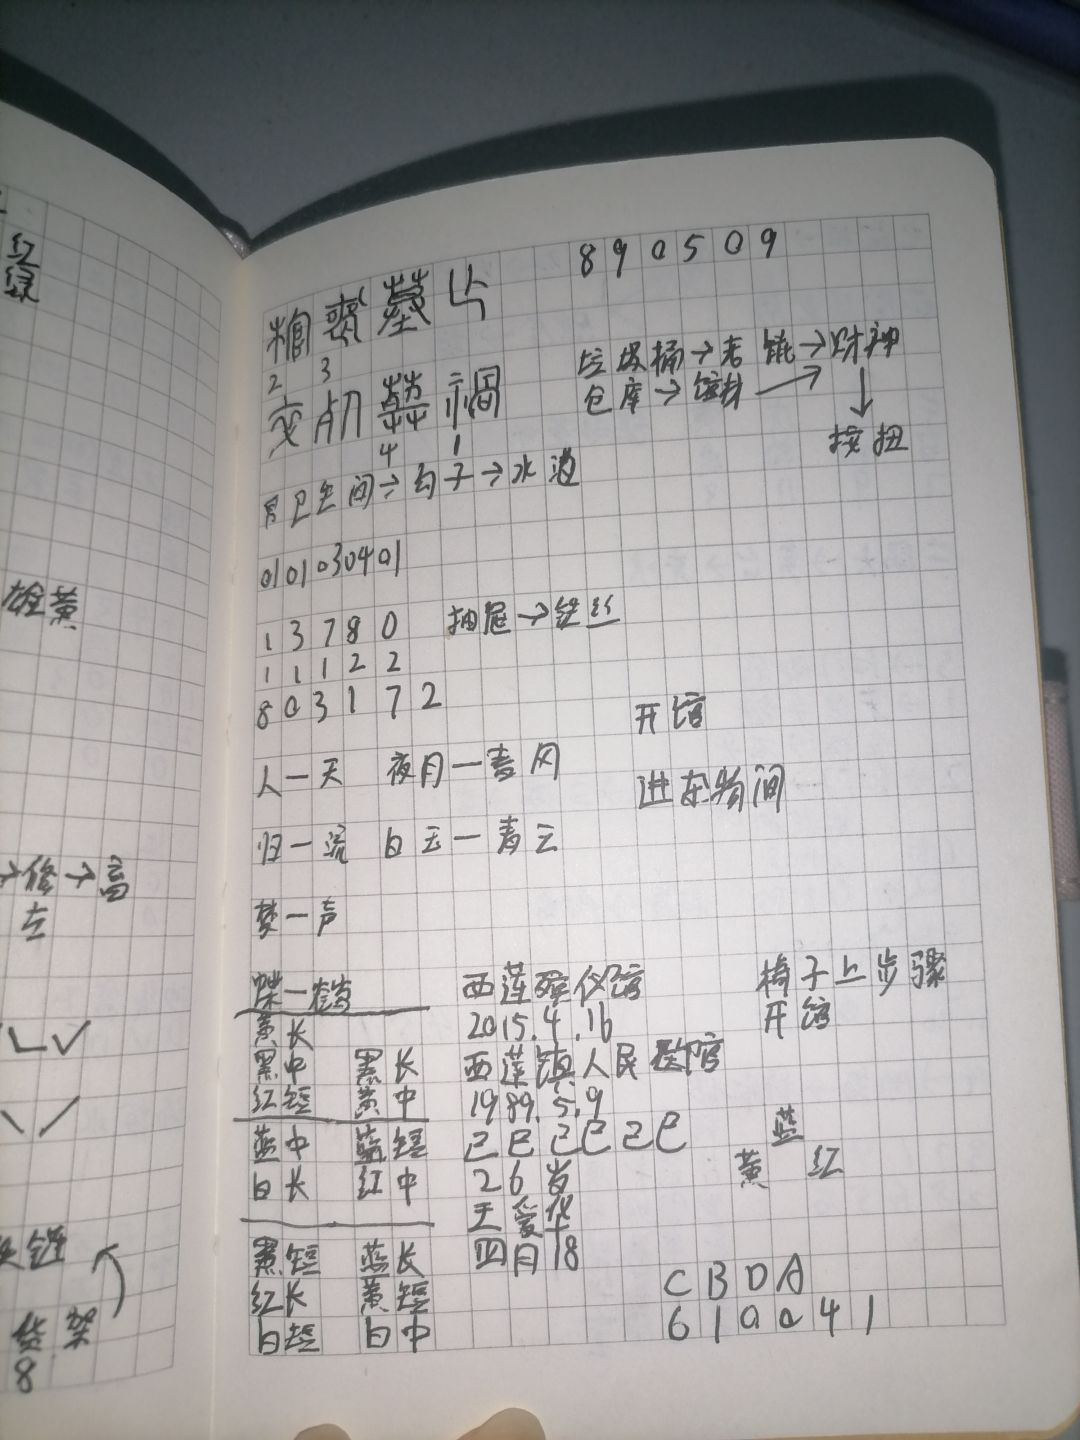 红
绿
雄黄
→修→高
左
货架
8
890509
2 3
4 1
垃圾桶→老馆→财神
仓库→馆料→
↓
按扭
卫生间→勾子→水池
0101030401
1 3 7 8 0 抽屉→铁丝
1 1 1 2 2
8 0 3 1 7 2
开馆
人一天 夜月一春风
进杂物间
归一流 白玉一青云
梦一声
蝶一
黄长
黑中 黑长
红短 黄中
蓝中 蓝短
白长 红中
黑短 蓝长
红长 黄短
白短 白中
西莲殡仪馆
2015.4.16
西莲镇人民医院
1989.5.9
己巳己巳己巳
26岁
王爱华
四月18
椅子上步骤
开馆
蓝
黄 红
C B D A
610041